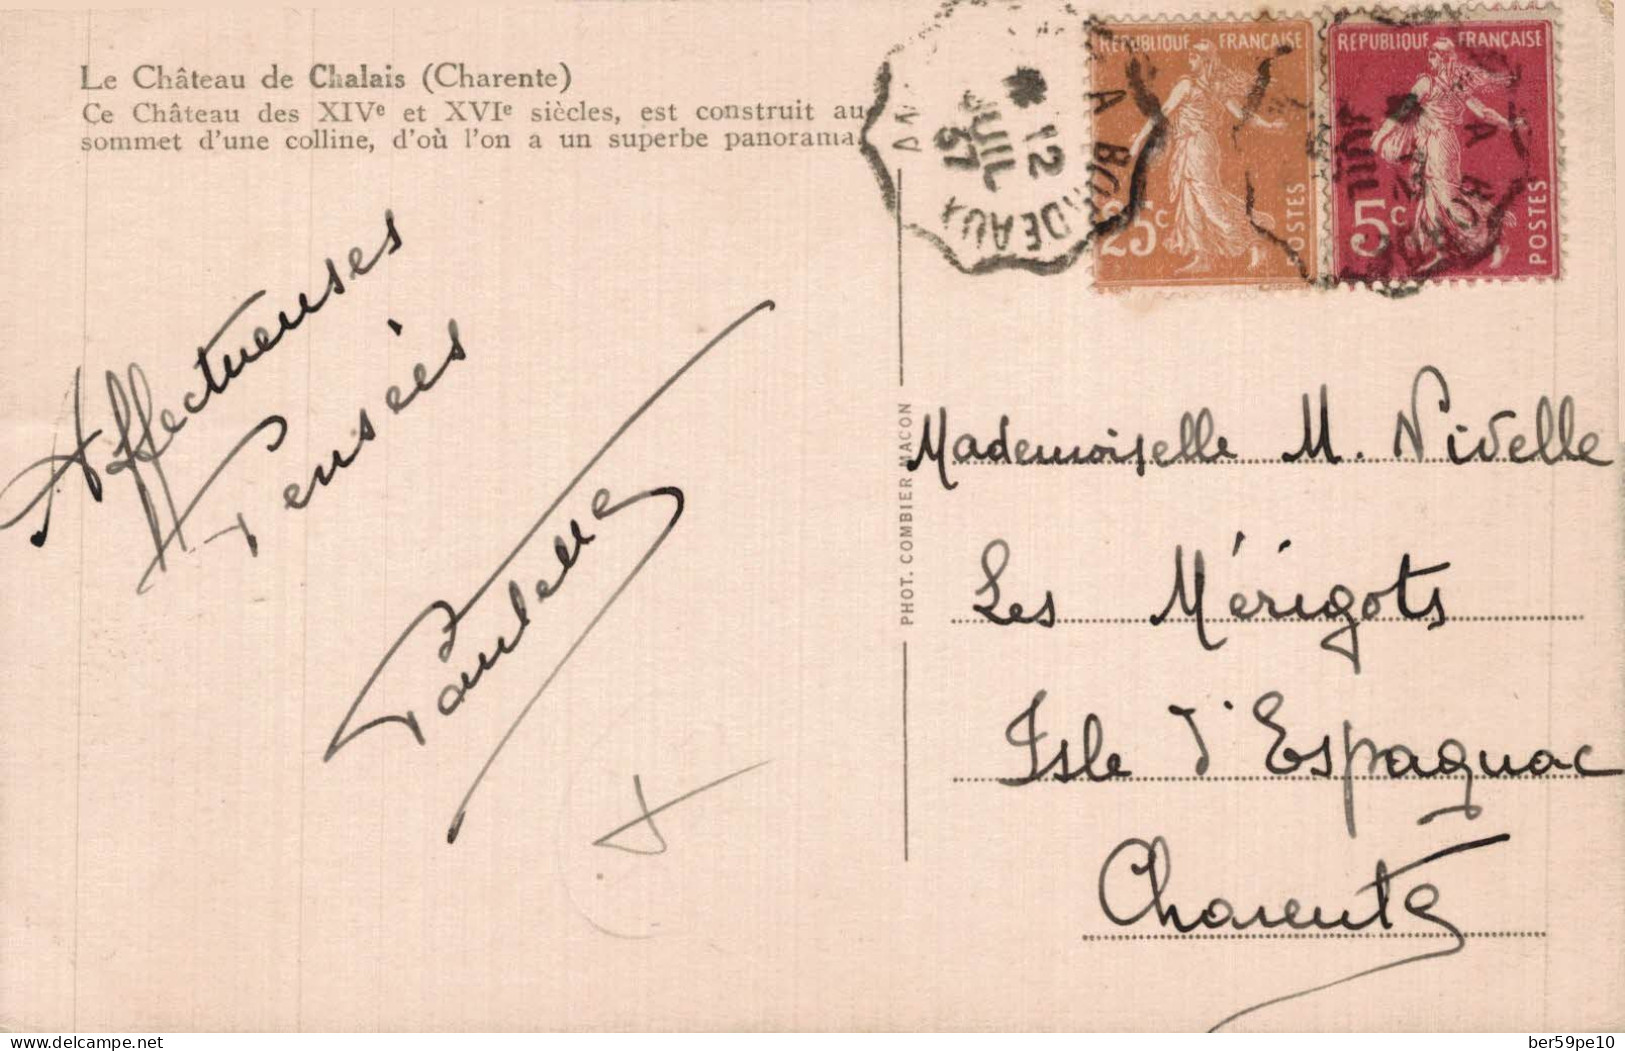 Le Château de Chalais (Charente)
Ce Château des XIVe et XVIe siècles, est construit au
sommet d'une colline, d'où l'on a un superbe panorama.
A BORDEAUX
12
JUIL
37
REPUBLIQUE FRANÇAISE
25c
POSTES
REPUBLIQUE FRANÇAISE
5c
POSTES
A BORDEAUX
12
JUIL
Affectueuses
Pensées
Paulette
PHOT. COMBIER MACON
Mademoiselle M. Nivelle
Les Mérigots
Isle d'Espagnac
Charente
delcampe.net
ber59pe10